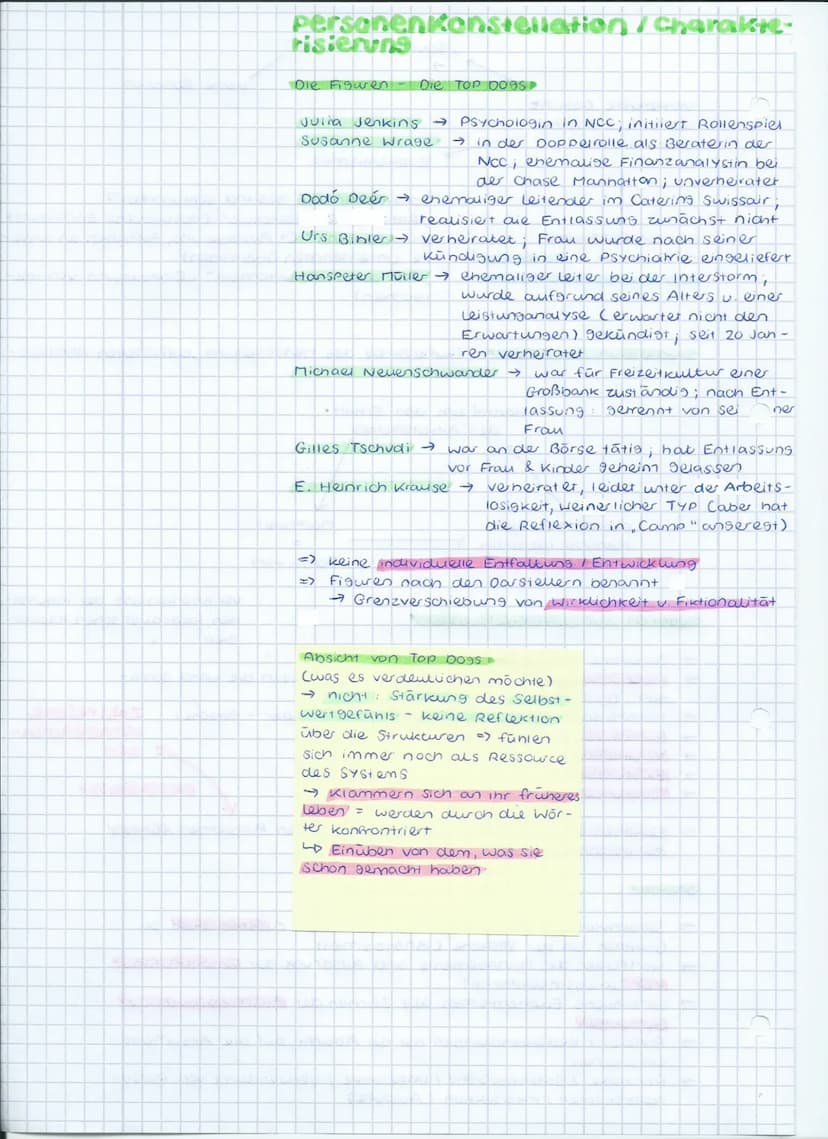 Personenkonstellation / Charakte-
risierung
Die Figuren - Die TOP DOGS
Julia Jenkins → Psychologin in NCC; initiiert Rollenspiel
Susanne Wrage → in der Doppelrolle als Beraterin der
NCC, ehemalige Finanzanalystin bei
der Chase Manhattan; unverheiratet
Dodó Deér → ehemaliger Leitender im Catering Swissair;
realisiert die Entlassung zunächst nicht
Urs Bihler → verheiratet; Frau wurde nach seiner
Kündigung in eine Psychiatrie eingeliefert
Hanspeter Müller → ehemaliger Leiter bei der Interstorm;
wurde aufgrund seines Alters u. einer
Leistunganalyse (erwartet nicht den
Erwartungen) gekündigt; seit 20 Jah-
ren verheiratet
Michael Neuenschwander → war für Freizeitkultur einer
Großbank zuständig; nach Ent-
lassung: getrennt von sei ner
Frau
Gilles Tschudi → war an der Börse tätig; hat Entlassung
vor Frau & Kinder geheim gelassen
E. Heinrich Krause → verheiratet, leidet unter der Arbeits-
losigkeit, weinerlicher Typ (aber hat
die Reflexion in „Camp" angeregt)
=> keine individuelle Entfaltung / Entwicklung
=> Figuren nach den Darstellern benannt
→ Grenzverschiebung von Wirklichkeit u. Fiktionalität
Absicht von TOP DOGS
(was es verdeutlichen möchte)
→ nicht: Stärkung des Selbst-
wertgefühls - keine Reflektion
über die Strukturen => fühlen
sich immer noch als Ressource
des Systems
→ Klammern sich an ihr früheres
Leben = werden durch die Wör-
ter konfrontiert
↳ Einüben von dem, was sie
schon gemacht haben